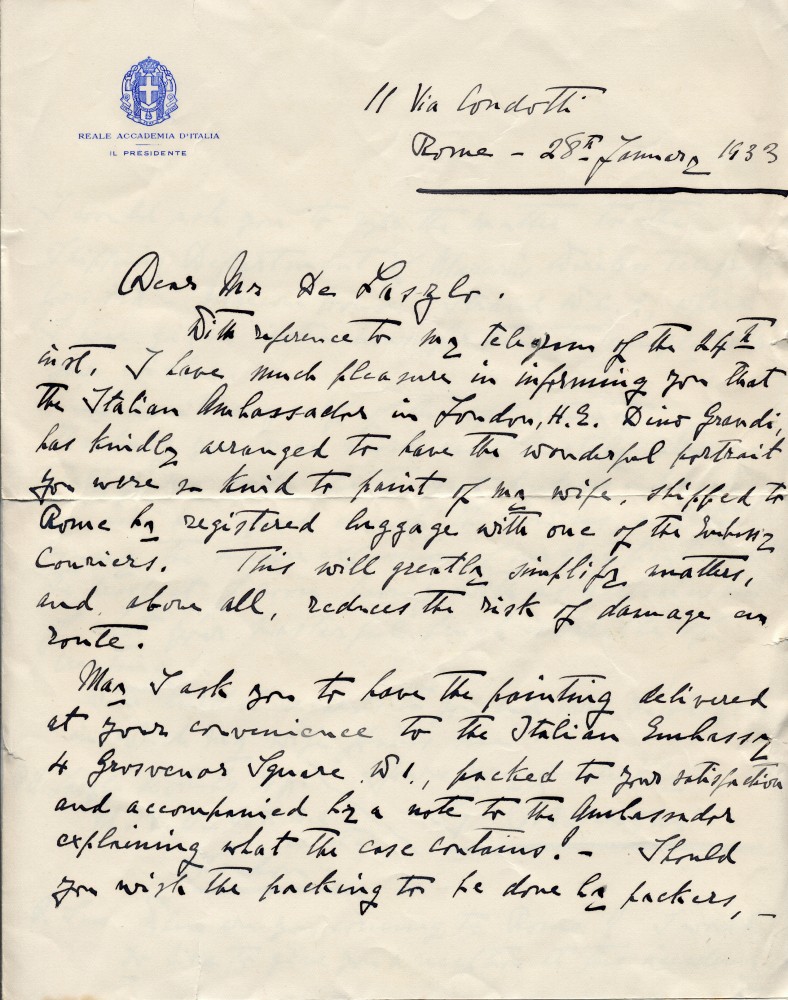 REALE ACCADEMIA D'ITALIA
IL PRESIDENTE
11 Via Condotti
Rome - 28th January 1933
Dear Mr De Laszlo.
With reference to my telegram of the 24th
inst. I have much pleasure in informing you that
the Italian Ambassador in London, H.E. Dino Grandi,
has kindly arranged to have the wonderful portrait
you were so kind to paint of my wife, shipped to
Rome by registered luggage with one of the Embassy
Couriers. This will greatly simplify matters,
and, above all, reduces the risk of damage en
route.
May I ask you to have the painting delivered
at your convenience to the Italian Embassy
4 Grosvenor Square W1., packed to your satisfaction
and accompanied by a note to the Ambassador
explaining what the case contains! - Should
you wish the packing to be done by packers, -